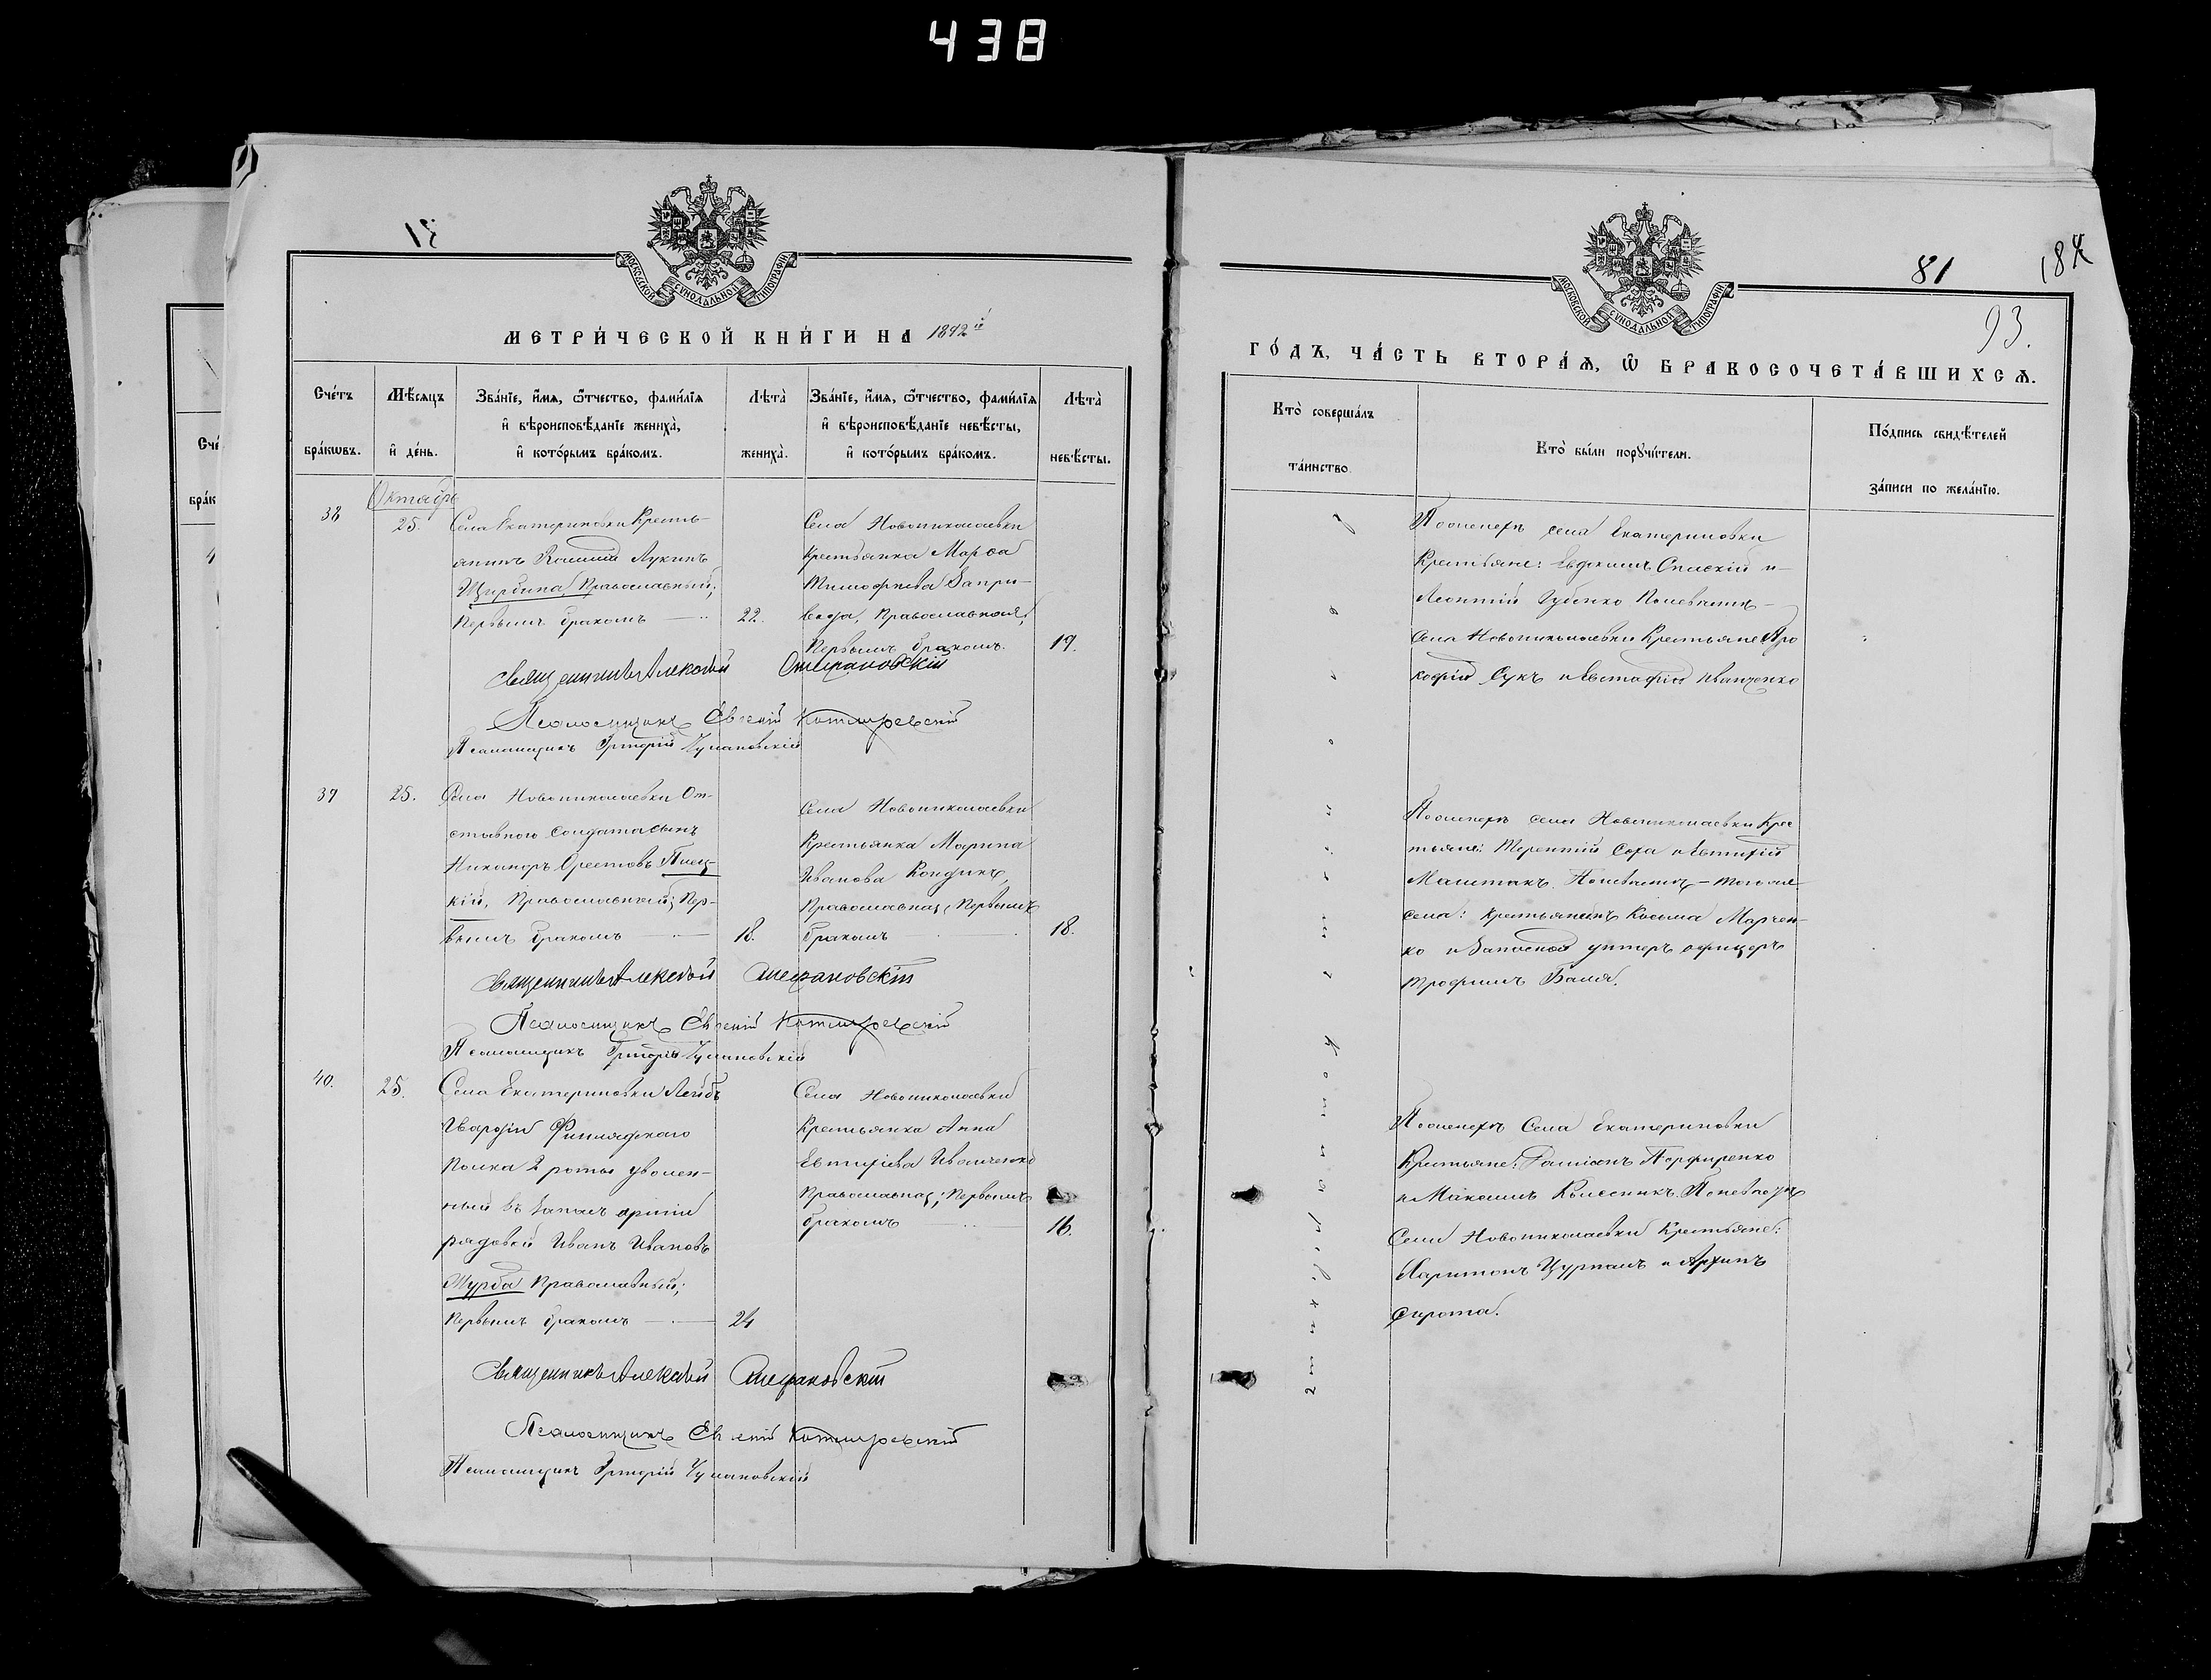 438
81
МОСКОВСКОЙ СѴНОДАЛЬНОЙ ТИПОГРАФІИ
МЕТРИ́ЧЕСКОЙ КНИ́ГИ НА 1892 й
Сче́тъ бра́кѡвъ.
Мѣ́сяцъ и де́нь.
Зва́нїе, и́мя, ѻ́тчество, фами́лїя и вѣроисповѣ́данїе жениха̀, и кото́рымъ бра́комъ.
Лѣ́та жениха̀.
Зва́нїе, и́мя, ѻ́тчество, фами́лїя и вѣроисповѣ́данїе невѣ́сты, и кото́рымъ бра́комъ.
Лѣ́та невѣ́сты.
Октябрь
38
25.
Села Екатериновки Кресть-
янинъ Лукинъ
Щирбина Православный;
Первымъ бракомъ
22.
Села Новониколаевки
Крестьянка Марфа
Тимофѣева Запри-
вода, Православная,
Первымъ бракомъ.
19.
Священникъ Алексѣй Стефановскій
Псаломщикъ Евгеній Котляревскій
Псаломщикъ Григорій
39
25.
Села Новониколаевки От-
ставного Солдата сынъ
Никаноръ Орестовъ
кій, Православный; Пер-
вымъ бракомъ
18.
Села Новониколаевки
Крестьянка Марина
Иванова
Православная, Первымъ
бракомъ
18.
Священникъ Алексѣй Стефановскій
Псаломщикъ Евгеній Котляревскій
Псаломщикъ Григорій
40.
25.
Села Екатериновки Лейбъ
Гвардіи Финляндскаго
Полка 2 роты уволен-
ный въ запасъ арміи
рядовой Иванъ Ивановъ
Журба Православный;
Первымъ бракомъ
24
Села Новониколаевки
Крестьянка Анна
Евтихіева Иванченко
Православная; Первымъ
бракомъ
16.
Священникъ Алексѣй Стефановскій
Псаломщикъ Евгеній Котляревскій
Псаломщикъ Григорій
МОСКОВСКОЙ СѴНОДАЛЬНОЙ ТИПОГРАФІИ
81
93.
ГО́ДЪ, ЧА́СТЬ ВТОРА́Я, Ѡ БРАКОСОЧЕТА́ВШИХСЯ.
Кто̀ соверша́лъ та́инство.
Кто̀ бы́ли порꙋчи́тели.
По́дпись свидѣ́телей за́писи по жела́нїю.
По женихѣ села Екатериновки
Крестьяне: Евдокимъ и
Леонтій Губенко По невѣстѣ
Села Новониколаевки Крестьяне Про
кофій Сукъ и Евстафій Иванченко
По женихѣ села Новониколаевки Крес
тьяне: Терентій Соха и Евтихій
По невѣстѣ того же
села: крестьянинъ Косьма Марчен-
ко и Запасной унтеръ офицеръ
Трофимъ
По женихѣ Села Екатериновки
Крестьяне: Порфиренко
и Максимъ Колесникъ. По невѣстѣ
Села Новониколаевки Крестьяне:
Харитонъ Цурканъ и Архипъ
Сирота.